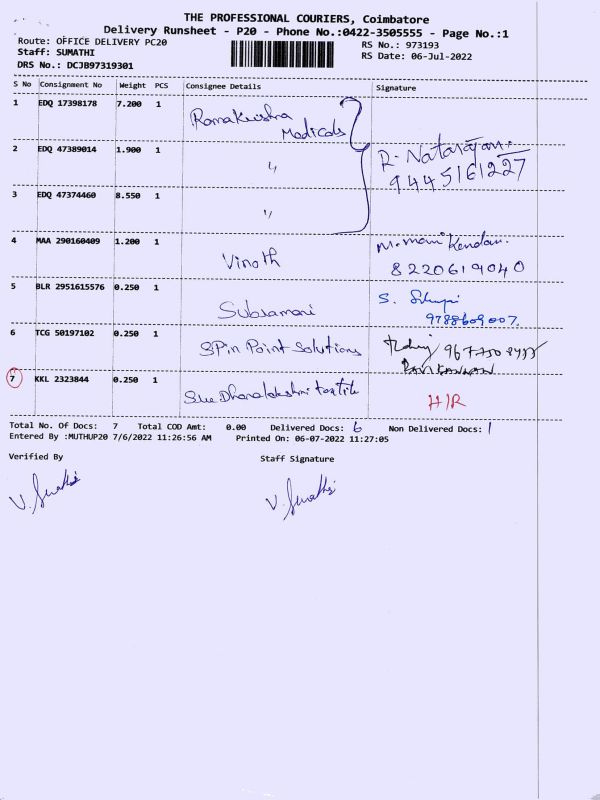 THE PROFESSIONAL COURIERS, Coimbatore
Delivery Runsheet - P20 - Phone No.:0422-3505555 - Page No.:1
Route: OFFICE DELIVERY PC20
RS No.: 973193
Staff: SUMATHI
RS Date: 06-Jul-2022
DRS No.: DCJB97319301
S No Consignment No Weight PCS Consignee Details Signature
1 EDQ 17398178 7.200 1 Ramakrishna Medicals
2 EDQ 47389014 1.900 1 " R. Natarajan. 9445161227
3 EDQ 47374460 8.550 1 "
4 MAA 290160409 1.200 1 Vinoth M. Mani Kandan. 8220619040
5 BLR 2951615576 0.250 1 Subramani S. 9788609007.
6 TCG 50197102 0.250 1 3Pin Point Solutions
7 KKL 2323844 0.250 1 Sree Dhanalakshmi textile H/R
Total No. Of Docs: 7 Total COD Amt: 0.00 Delivered Docs: 6 Non Delivered Docs: 1
Entered By :MUTHUP20 7/6/2022 11:26:56 AM Printed On: 06-07-2022 11:27:05
Verified By Staff Signature
V. Sumathi V. Sumathi